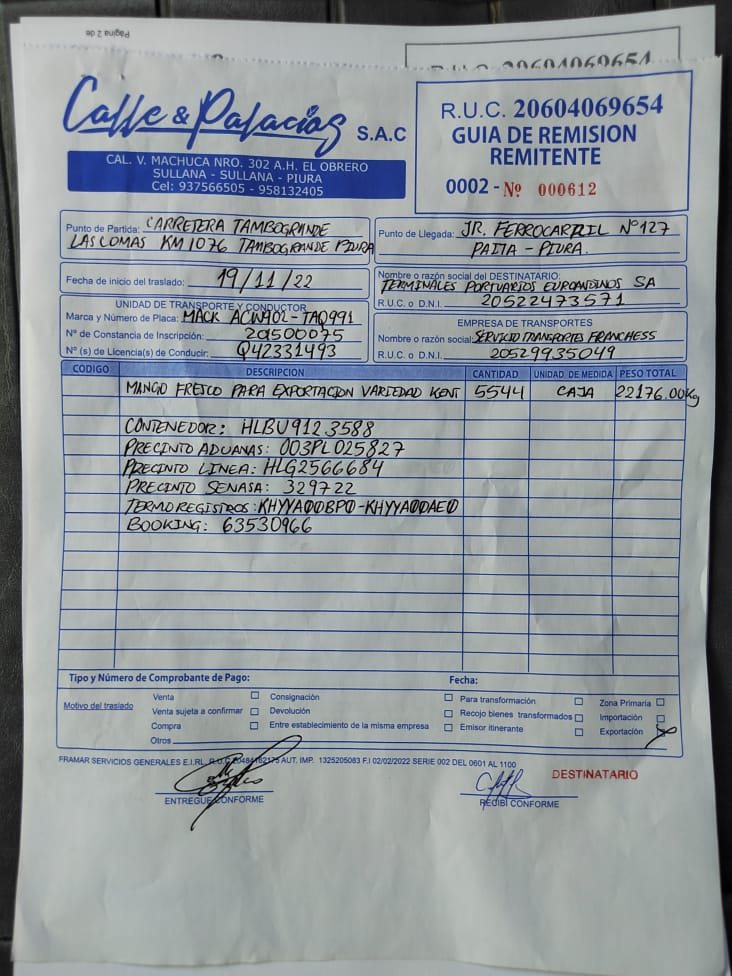 Página 2 de
R.U.C. 20604069654
Calle & Palacios S.A.C
CAL. V. MACHUCA NRO. 302 A.H. EL OBRERO
SULLANA - SULLANA - PIURA
Cel: 937566505 - 958132405
R.U.C. 20604069654
GUIA DE REMISION
REMITENTE
0002 - Nº 000612
Punto de Partida: CARRETERA TAMBOGRANDE
LAS LOMAS KM 1076 TAMBOGRANDE PIURA
Punto de Llegada: JR. FERROCARRIL Nº 127
PAITA - PIURA.
Fecha de inicio del traslado: 19/11/22
Nombre o razón social del DESTINATARIO:
TERMINALES PORTUARIOS EUROANDINOS SA
R.U.C. o D.N.I. 20522473571
UNIDAD DE TRANSPORTE Y CONDUCTOR
Marca y Número de Placa: MACK ACW902 - TAQ991
Nº de Constancia de Inscripción: 20500075
Nº (s) de Licencia(s) de Conducir: Q42331493
EMPRESA DE TRANSPORTES
Nombre o razón social: SERVICIO TRANSPORTES FRANCHESS
R.U.C. o D.N.I. 20529935049
CODIGO DESCRIPCION CANTIDAD UNIDAD DE MEDIDA PESO TOTAL
MANGO FRESCO PARA EXPORTACION VARIEDAD KENT 5544 CAJA 22176.00Kg
CONTENEDOR: HLBU912.3588
PRECINTO ADUANAS: 003PL025827
PRECINTO LINEA: HLG2566684
PRECINTO SENASA: 329722
TERMOREGISTROS: KHYYA00BP0 - KHYYA00AE0
BOOKING: 63530966
Tipo y Número de Comprobante de Pago: Fecha:
Motivo del traslado
Venta Consignación Para transformación Zona Primaria
Venta sujeta a confirmar Devolución Recojo bienes transformados Importación
Compra Entre establecimiento de la misma empresa Emisor itinerante Exportación
Otros
FRAMAR SERVICIOS GENERALES E.I.RL. R.U.C. 20484182175 AUT. IMP. 1325205083 F.I 02/02/2022 SERIE 002 DEL 0601 AL 1100
DESTINATARIO
ENTREGUE CONFORME RECIBI CONFORME